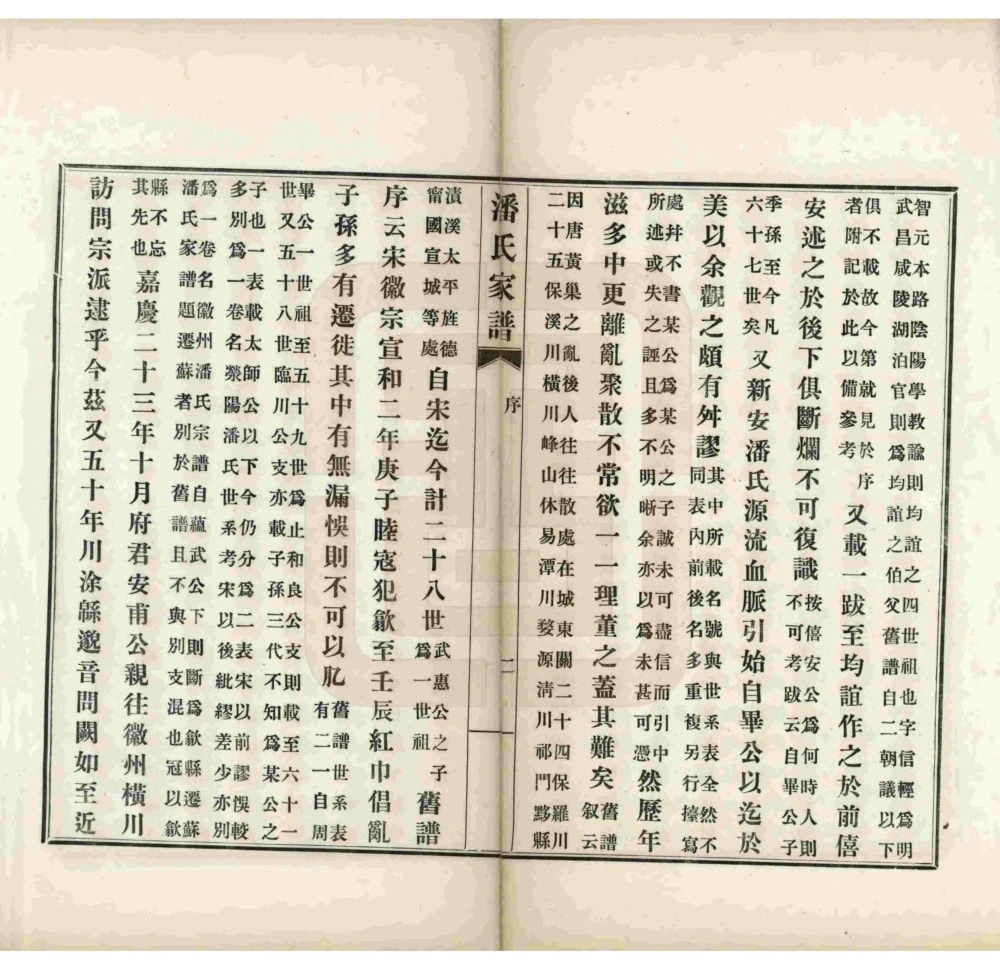 智元本路陰陽學教諭則均誼之四世祖也字信輕爲明
武昌咸陵湖泊官則爲均誼之伯父舊譜自二朝議以下
俱不載故今第就見於序
者附記於此以備參考
又載一跋至均誼作之於前僖
安述之於後下俱斷爛不可復識
按僖安公爲何時人則
不可考跋云自畢公子
季孫至今凡
六十七世矣
又新安潘氏源流血脈引始自畢公以迄於
美以余觀之頗有舛謬
其中所載名號與世系表全然不
同表內前後名多重複另行擡寫
處幷不書某公爲某公之子誠未可盡信而引中
所述或失之誣且多不明晰余亦以爲未甚可憑
然歷年
滋多中更離亂聚散不常欲一一理董之蓋其難矣
舊譜
叙云
因唐黃巢之亂後人往往散處在城東關二十四保羅川
二十五保溪川橫川峰山休易潭川婺源淸川祁門黟縣
潘氏家譜
序
二
漬溪太平旌德
甯國宣城等處
自宋迄今計二十八世
武惠公之子
爲一世祖
舊譜
序云宋徽宗宣和二年庚子睦寇犯歙至壬辰紅巾倡亂
子孫多有遷徙其中有無漏悞則不可以肊
舊譜世系表
有二一自周
畢公一世祖至五十九世爲止和良公支則載至六十一
世又五十八世臨川公支亦載子孫三代不知爲某公之
子也一表載太師公以下今仍分爲二表宋以前謬悞較
多別爲一卷名滎陽潘氏世系考宋以後紕繆差少亦別
爲一卷名徽州潘氏宗譜自蘊武公下則斷爲歙縣遷蘇
潘氏家譜題遷蘇者別於舊譜且不與別支混也冠以歙
縣不忘
其先也
嘉慶二十三年十月府君安甫公親往徽州橫川
訪問宗派逮乎今茲又五十年川涂緜邈音問闕如至近